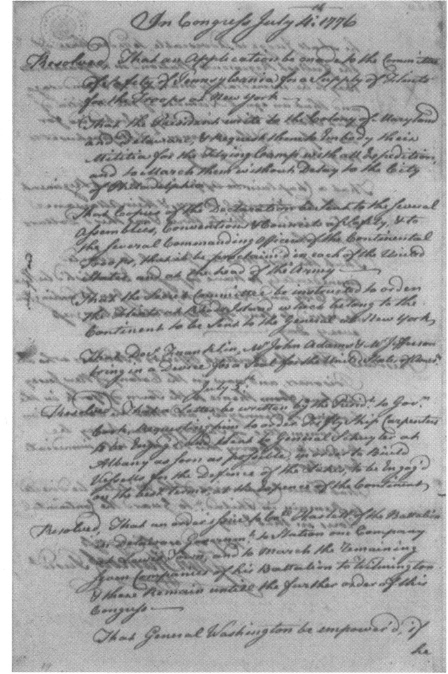 In Congress July 4th. 1776
Resolved, That an Application be made to the Committee
of Safety of Pennsylvania for a Supply of Flints
for the Troops at New York
That the President write to the Colony of Maryland
and Delaware, & Request them to Embody their
Militia for the Flying Camp with all Expedition
and to March them without Delay to the City
of Philadelphia
That Copies of the Declaration be sent to the several
Assemblies, Conventions & Councils of Safety, & to
the several Commanding Officers of the Continental
Troops, that it be proclaimed in each of the United
States, and at the head of the Army
That the Secret Committee be instructed to order
the Flints at Rhode Island which belong to the
Continent to be sent to the General at New York
That Doctr. Franklin, Mr John Adams & Mr Jefferson
bring in a Device for a Seal for the United States of
July
Resolved, That a Letter be written by the to Govr.
Cook, Requesting him to order Fifty Ship Carpenters
to be Engag'd and sent to General Schuyler at
Albany as soon as possible in order to Build
Vessells for the Defence of the Lakes, to be Engag'd
on the best terms, at the Expence of the Continent
Resolved, That an order issue to Colo. Haslett of the Battalion
in Delaware Governmt. to Station one Company
at Lewis Town, and to March the Remaining
Companies of his Battalion to Wilmington
& there Remain untill the further order of this
Congress
That General Washington be empower'd, if
he